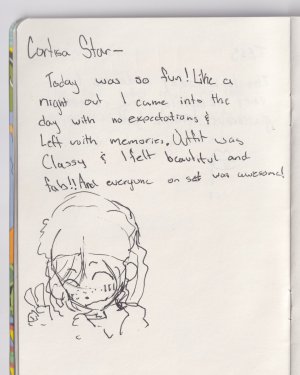 Cortisa Star-
Today was so fun! Like a
night out I came into the
day with no expectations &
Left with memories. Outfit was
Classy & I felt beautiful and
fab!! And everyone on set was awesome!